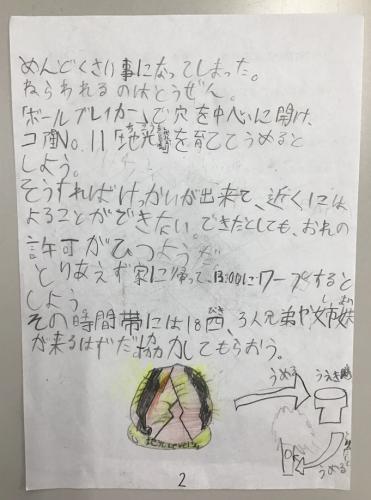 めんどくさい事になってしまった。
ねらわれるのはとうぜん。
「ボールブレイカー」で穴を中心に開け、
コ菌No.11「地光
を育ててうめると
しよう。
そうすればけっかいが出来て、近くには
よることができない。できたとしても、おれの
許可がひつようだ
とりあえず家に帰って、13:00にワープすると
しよう。
その時間帯には18匹、3人兄弟や姉妹
が来るはずだ協力してもらおう。
うめる
うえき
うめる
2